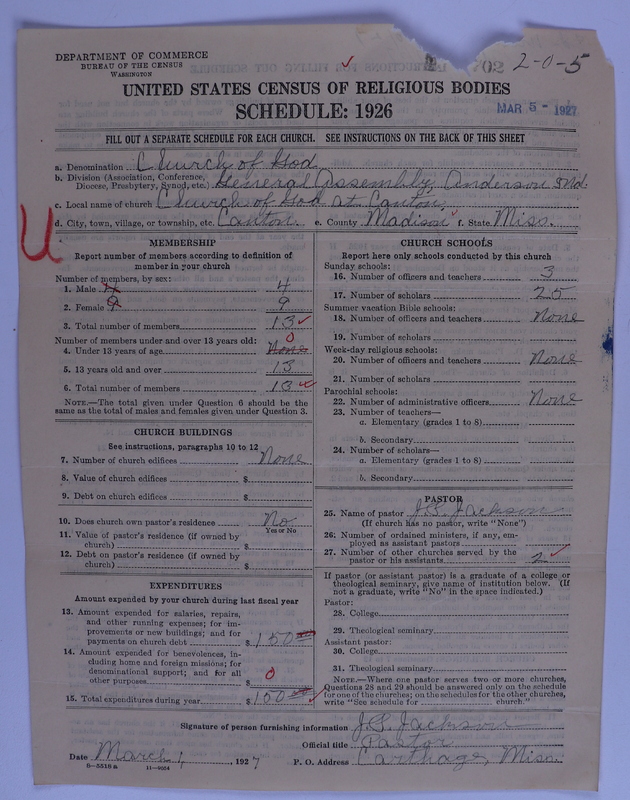 2-0-5
DEPARTMENT OF COMMERCE
BUREAU OF THE CENSUS
WASHINGTON
UNITED STATES CENSUS OF RELIGIOUS BODIES
SCHEDULE: 1926
MAR 5 - 1927
FILL OUT A SEPARATE SCHEDULE FOR EACH CHURCH. SEE INSTRUCTIONS ON THE BACK OF THIS SHEET
a. Denomination Church of God
b. Division (Association, Conference, Diocese, Presbytery, Synod, etc.) General Assembly, Anderson Ind.
c. Local name of church Church of God at Canton
d. City, town, village, or township, etc. Canton e. County Madison f. State Miss.
U
MEMBERSHIP
Report number of members according to definition of
member in your church
Number of members, by sex:
1. Male 4 4
2. Female 9 9
3. Total number of members 13
Number of members under and over 13 years old:
4. Under 13 years of age None 0
5. 13 years old and over 13
6. Total number of members 13
NOTE.—The total given under Question 6 should be
same as the total of males and females given under Question 3.
CHURCH BUILDINGS
See instructions, paragraphs 10 to 12
7. Number of church edifices None
8. Value of church edifices $
9. Debt on church edifices $
10. Does church own pastor's residence No
Yes or No
11. Value of pastor's residence (if owned by
church) $
12. Debt on pastor's residence (if owned by
church) $
EXPENDITURES
Amount expended by your church during last fiscal year
13. Amount expended for salaries, repairs,
and other running expenses; for im-
provements or new buildings; and for
payments on church debt $ 150
14. Amount expended for benevolences, in-
cluding home and foreign missions; for
denominational support; and for all
other purposes $ 0
15. Total expenditures during year $ 100
CHURCH SCHOOLS
Report here only schools conducted by this church
Sunday schools:
16. Number of officers and teachers 3
17. Number of scholars 25
Summer vacation Bible schools:
18. Number of officers and teachers None
19. Number of scholars
Week-day religious schools:
20. Number of officers and teachers None
21. Number of scholars
Parochial schools:
22. Number of administrative officers None
23. Number of teachers—
a. Elementary (grades 1 to 8)
b. Secondary
24. Number of scholars—
a. Elementary (grades 1 to 8)
b. Secondary
PASTOR
25. Name of pastor J.S. Jackson
(If church has no pastor, write "None")
26. Number of ordained ministers, if any, em-
ployed as assistant pastors
27. Number of other churches served by the
pastor or his assistants 2
If pastor (or assistant pastor) is a graduate of a college or
theological seminary, give name of institution below. (If
not a graduate, write "No" in the space indicated.)
Pastor:
28. College
29. Theological seminary
Assistant pastor:
30. College
31. Theological seminary
NOTE.—Where one pastor serves two or more churches,
Questions 28 and 29 should be answered only on the schedule
for one of the churches; on the schedules for the other churches,
write "See schedule for church."
Signature of person furnishing information J.S. Jackson
Official title Pastor
Date March 1, 1927 P. O. Address Carthage, Miss.